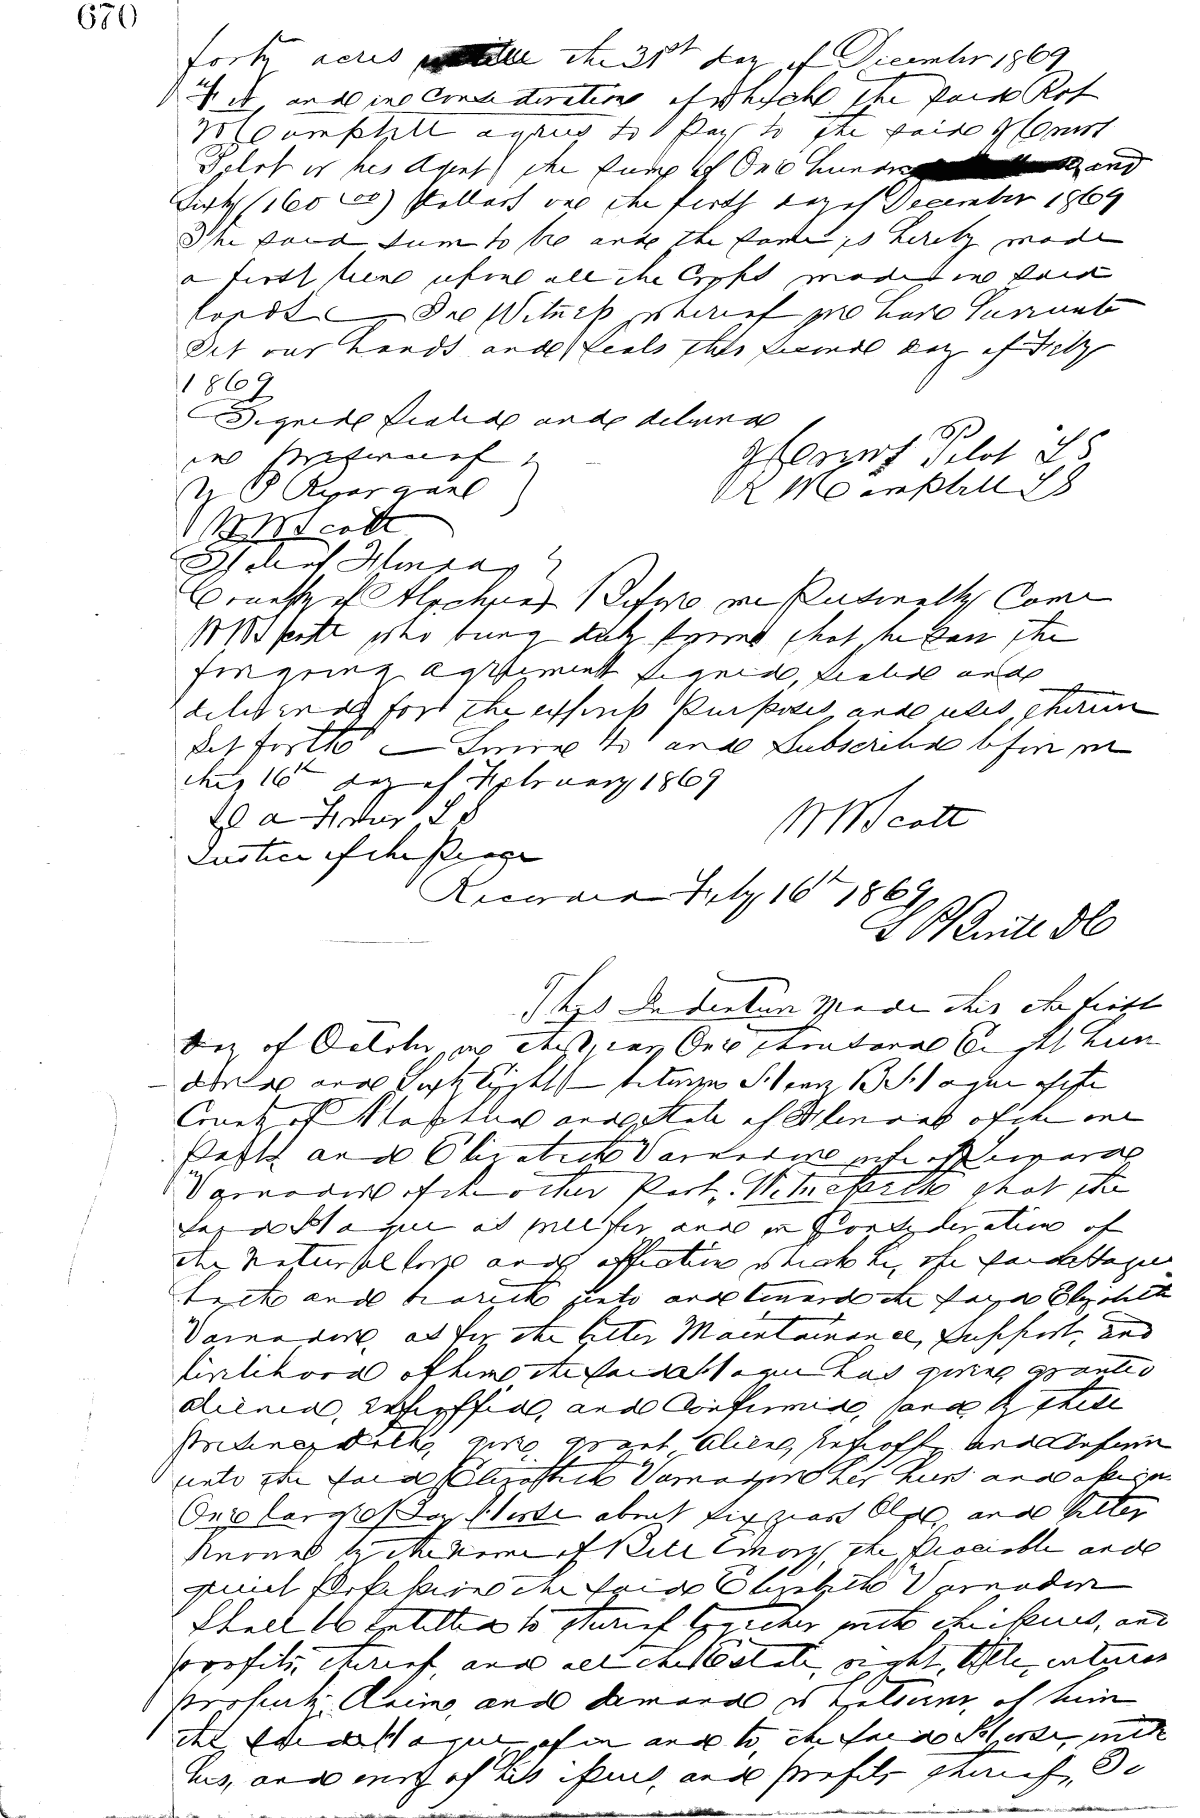 670
forty acres untill the 31st day of December 1869
For, and in Consideration of which the said Rot
McCampbell agrees to pay to the said
Pilot or his Agent the sum of One hundred and
Sixty (160 00) Dollars on the first day of December 1869
The said sum to be and the same is hereby made
a first lien upon all the Crops made on said
lands — In Witness whereof we have hereunto
Set our hands and seals this second day of Feby
1869
Signed Sealed and delivered
in presence of
Pilot LS
R McCampbell LS
W W Scott
State of Florida
County of Alachua Before me Personally Came
W W Scott who being duly sworn that he saw the
foregoing agreement signed, sealed and
delivered for the express purposes and uses therein
Set forth — Sworn to and Subscribed before me
this 16th day of February 1869
W W Scott
Justice of the Peace
Recorded Feby 16th 1869
This Indenture Made this the first
day of October, in the year One thousand Eight hun
dred and Sixty Eight — between Henry B Hague of the
County of Alachua and State of Florida of the one
Part and Elizabeth Varnadore wife of Leonard
Varnadore of the other Part. Witnesseth that the
said Hague as well for and in Consideration of
the Natural love and affection which he, the said Hague
hath and beareth unto and toward the said Elizabeth
Varnadore, as for the better Maintainance, support, and
livelihood of him the said Hague has given granted
aliened, enfeoffed, and Confirmed, and by these
presence doth, give, grant, aliene, enfeoff, and Confirm
unto the said Elizabeth Varnadore her heirs and assigns
One large Bay Horse about six years Old, and better
Known by the name of Bill Emory, the peaceable and
quiet possession the said Elizabeth Varnadore
Shall be entitled to thereof together with the issues, and
profits, thereof, and all the Estate, right, title, interest
property, Claim, and demand whatsoever, of him
the said Hague, of in and to, the said Horse, with
his, and every of his issues, and profits thereof, To